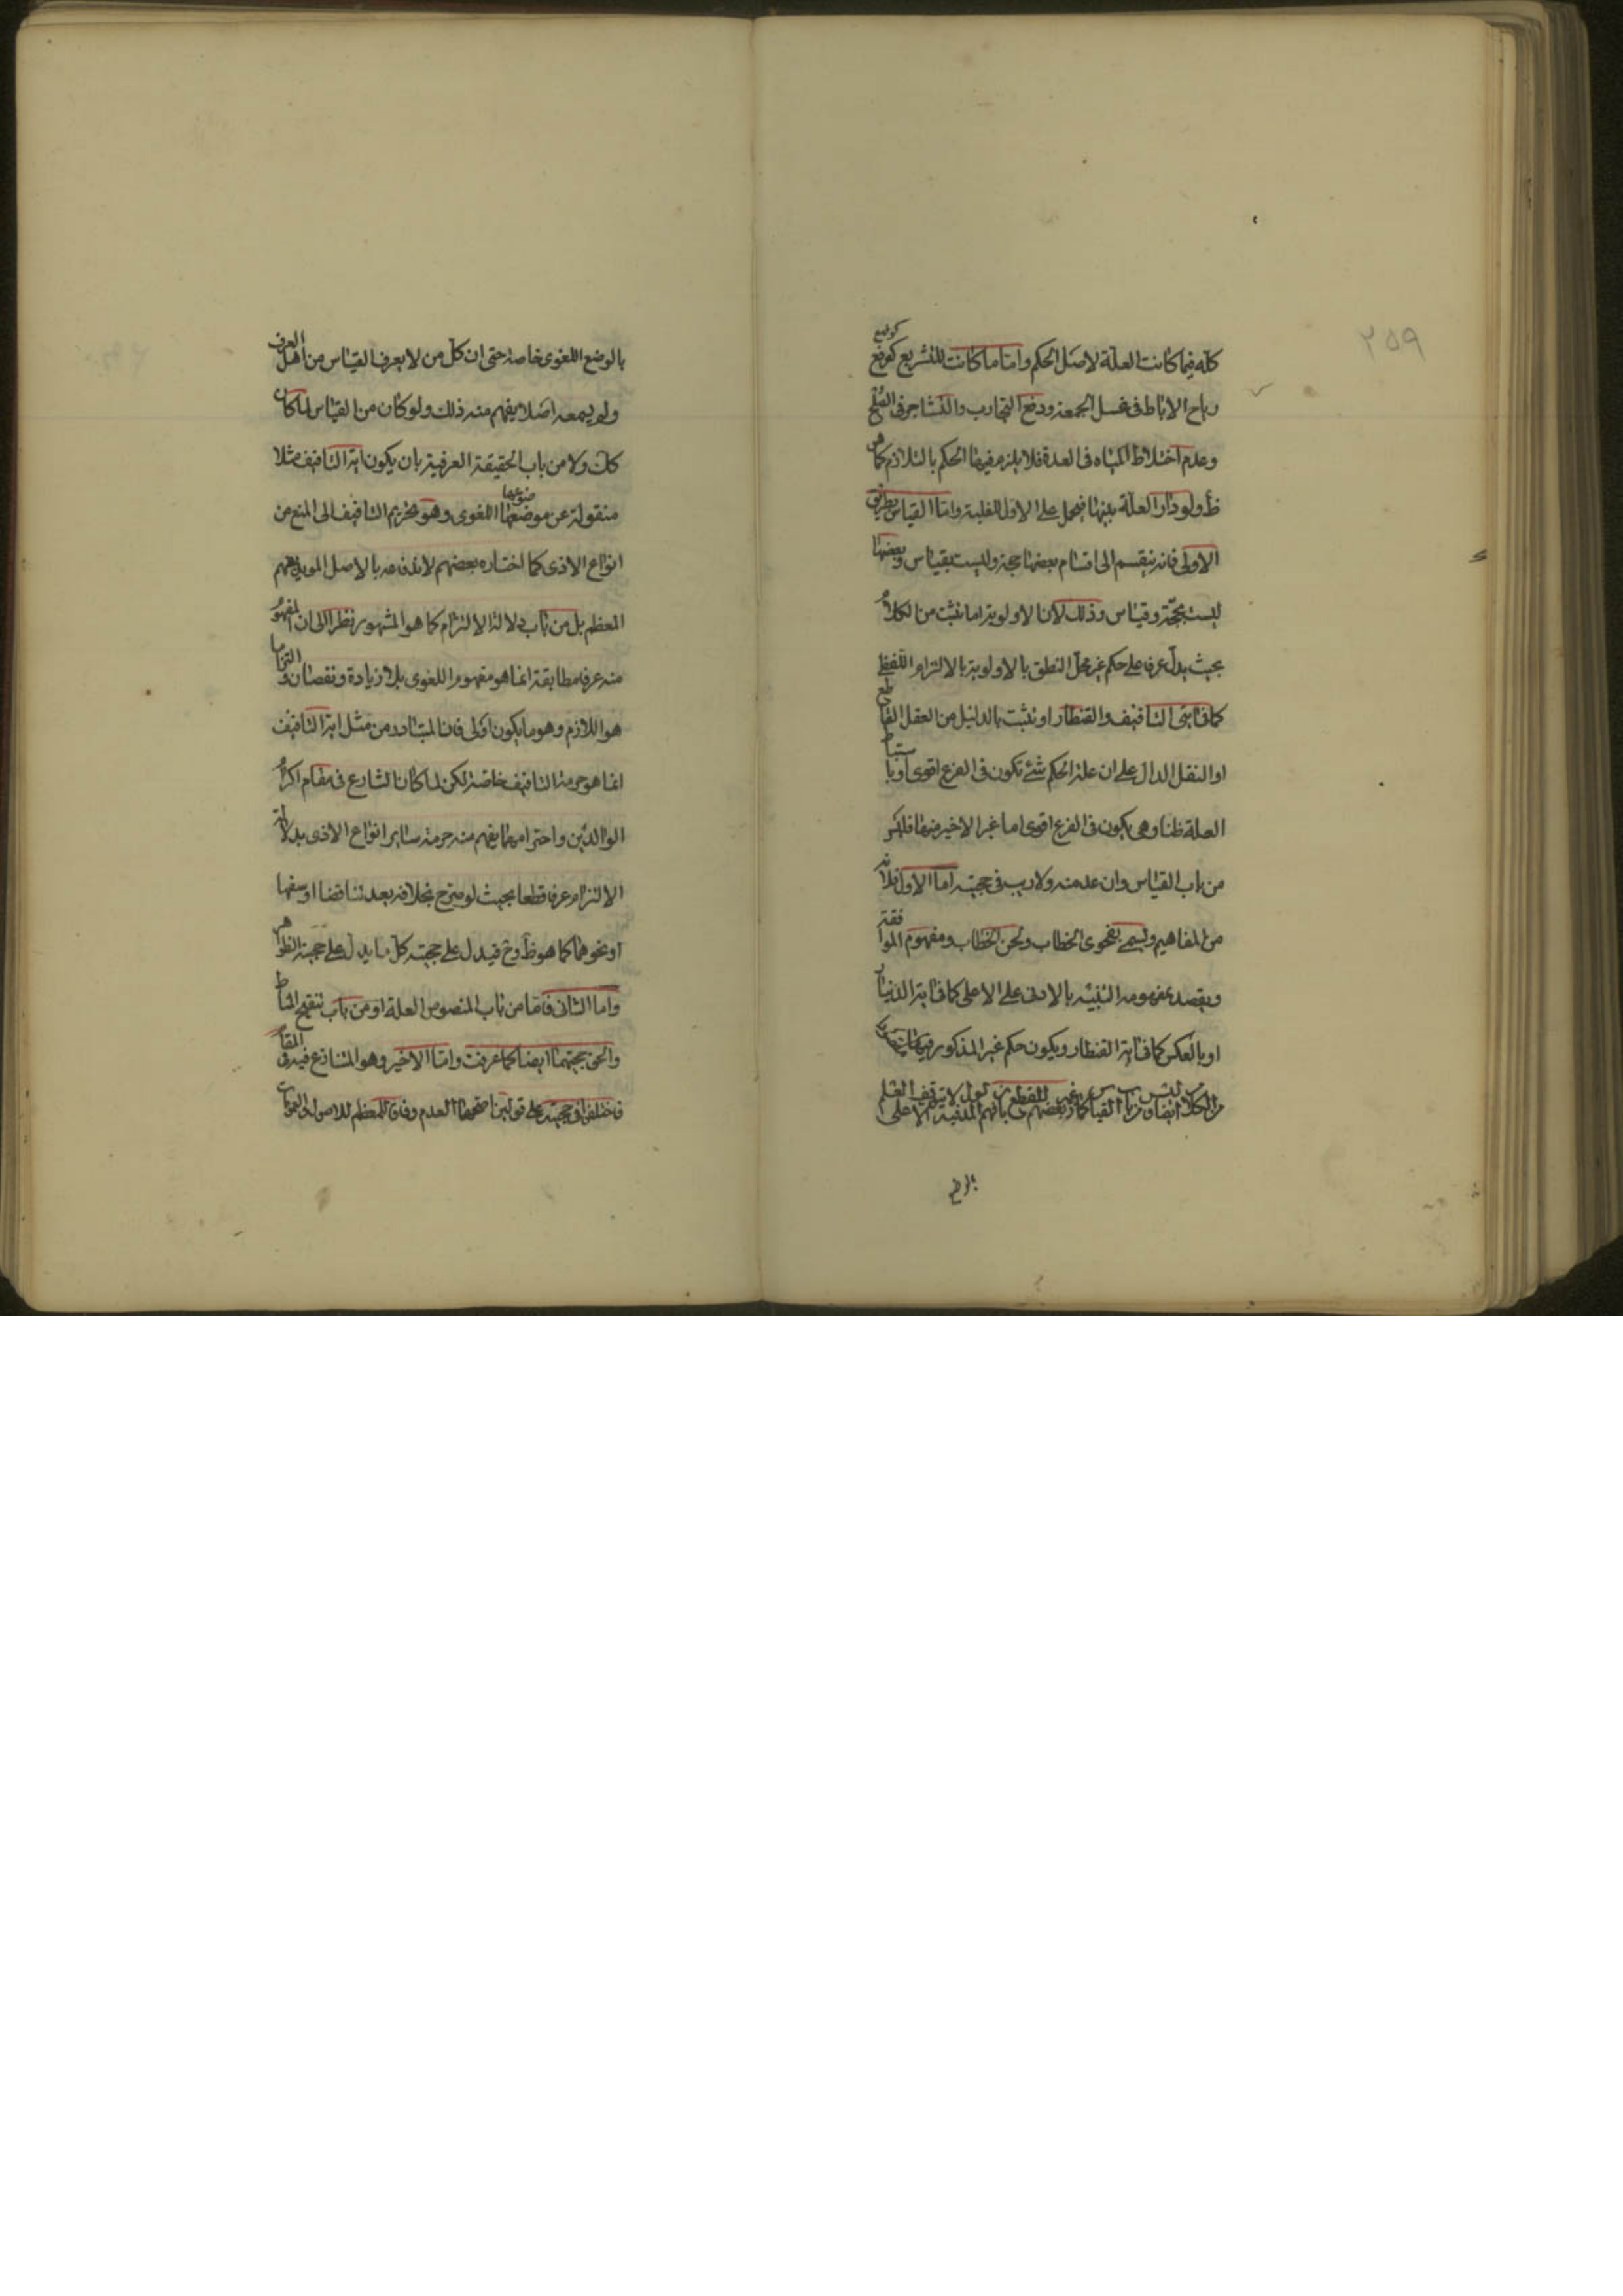 ٢٥٩
كلّه فيما كانت العلّة لاصل الحكم واما ما كانت للتشريع كرفع
رياح الاباط فى غسل الجمعة ودفع التجارب والتشاجر فى الصلح
وعدم اختلاط المياه فى العدة فلا يلزم فيها الحكم بالتلازم كما هو
ظ ولو دار العلّة بينهما فيحمل على الاول للغلبة واما القياس بطريق
الاولى فانه ينقسم الى اقسام بعضها حجة وليست بقياس وبعضها
ليست بحجّة وقياس وذلك لان الاولوية اما تثبت من الكلام
بحيث يدلّ عرفا على حكم غير محلّ النطق بالاولوية بالالتزام اللفظى
كما فى ايتى التافيف والقنطار او تثبت بالدليل من العقل القاطع
او النقل الدال على ان علة الحكم شئ تكون فى الفرع اقوى او باستنباط
العلة ظنا وهى يكون فى الفرع اقوى اما غير الاخير منها فليس
من باب القياس وان عد منه ولا ريب فى حجيته اما الاول فلانه
من المفاهيم ويسمى بفحوى الخطاب ولحن الخطاب ومفهوم الموافقة
ويقصد بمفهومه التنبيه بالادنى على الاعلى كما فى اية الدينار
او بالعكس كما فى اية القنطار ويكون حكم غير المذكور فيهما
بالوضع
بالوضع اللغوى خاصة حتى ان كلّ من لا يعرف القياس من اهل العرف
ولم يسمعه اصلا يفهم منه ذلك ولو كان من القياس لما كان
كك ولا من باب الحقيقة العرفية بان يكون اية التافيف مثلا
منقولة عن موضوعها اللغوى وهو تحريم التافيف الى المنع من
انواع الاذى كما اختاره بعضهم لاندفاعه بالاصل المويد بفهم
المعظم بل من باب دلالة الالتزام كما هو المشهور نظرا الى ان المفهوم
منه عرفا مطابقة انما هو مفهوم اللغوى بلا زيادة ونقصان والتزاما
هو اللازم وهو ما يكون اولى فان المتبادر من مثل اية التافيف
انما هو حرمة التافيف خاصة لكن لما كان الشارع فى مقام اكرام
الوالدين واحترامهما يفهم منه حرمة ساير انواع الاذى بدلالة
الالتزام عرفا قطعا بحيث لو صرح بخلافه يعد تناقضا او سفها
او نحوهما كما هو ظ وح فيدل على حجيته كلّ ما يدل على حجية الظواهر
واما الثانى فاما من باب المنصوص العلة او من باب تنقيح المناط
والحق حجيتهما ايضا كما عرفت واما الاخير وهو المتنازع فيه فى المقام
فاختلفوا فى حجيته على قولين اصحهما العدم وفاقا للمعظم للاصول والعمومات